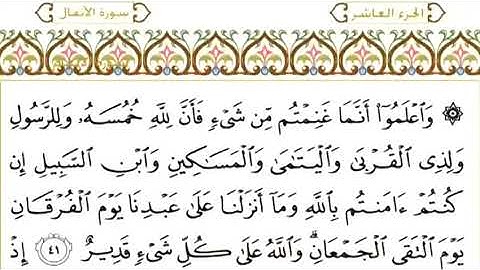 الجزء العاشر
سورة الأنفال
۞ وَٱعْلَمُوٓا۟ أَنَّمَا غَنِمْتُم مِّن شَىْءٍ فَأَنَّ لِلَّهِ خُمُسَهُۥ وَلِلرَّسُولِ
وَلِذِى ٱلْقُرْبَىٰ وَٱلْيَتَـٰمَىٰ وَٱلْمَسَـٰكِينِ وَٱبْنِ ٱلسَّبِيلِ إِن
كُنتُمْ ءَامَنتُم بِٱللَّهِ وَمَآ أَنزَلْنَا عَلَىٰ عَبْدِنَا يَوْمَ ٱلْفُرْقَانِ
يَوْمَ ٱلْتَقَى ٱلْجَمْعَانِ ۗ وَٱللَّهُ عَلَىٰ كُلِّ شَىْءٍ قَدِيرٌ ٤١ إِذْ